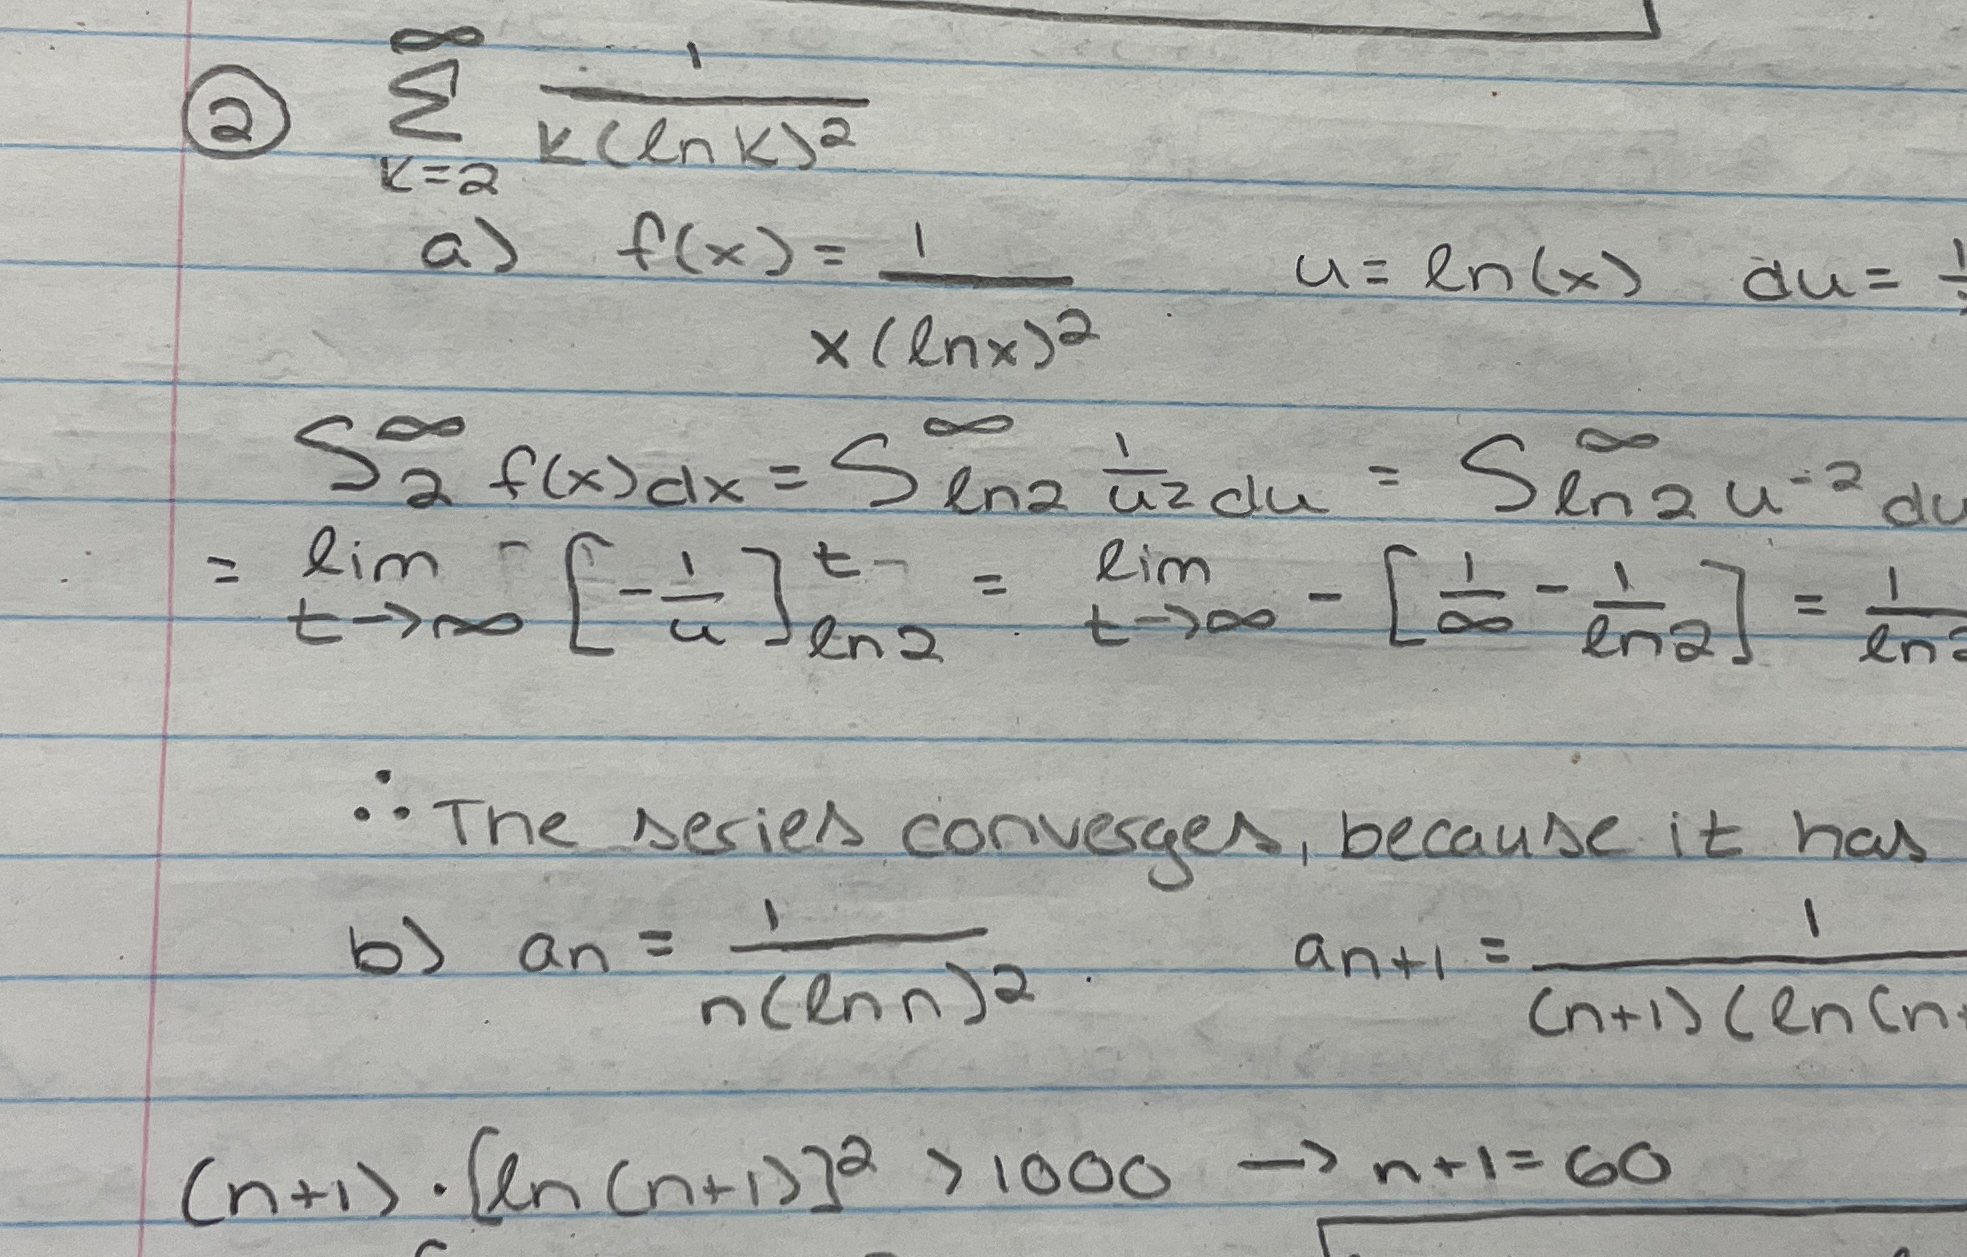 ② ∞
Σ 1/(k(ln k)²)
k=2
a) f(x) = 1/(x(lnx)²) u = ln(x) du = 1
∫₂^∞ f(x)dx = ∫_ln2^∞ 1/u² du = ∫_ln2^∞ u⁻² du
= lim t→∞ - [-1/u]_ln2^t = lim t→∞ - [1/∞ - 1/ln2] = 1/ln2
∴ The series converges, because it has
b) an = 1/(n(ln n)²) an+1 = 1/((n+1)(ln(n+
(n+1)·[ln(n+1)]² > 1000 → n+1 = 60